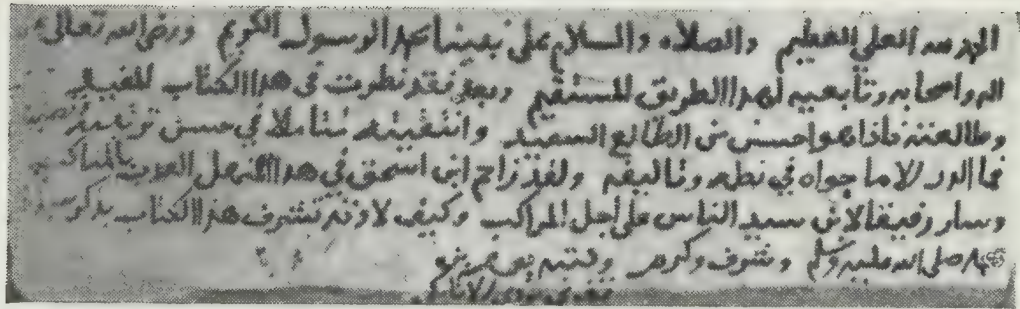 الحمد لله العلي العظيم والصلاة والسلام على نبينا محمد الرسول الكريم ورضي الله تعالى
اله واصحابه وتابعيه لهذا الطريق المستقيم وبعد فقد نظرت في هذا الكتاب
وطالعته فاذا هو احسن من الطالع السعيد وانتقيته متاملا في حسن
فما الدر الا ما حواه في نظمه وتاليفه ولقد زاحم ابن اسحق في هذا الفن على
وسار رفيقا لابن سيد الناس على اجل المراكب وكيف لا وقد تشرف هذا الكتاب بذكر
محمد صلى الله عليه وسلم وشرف وكرم وكتبه